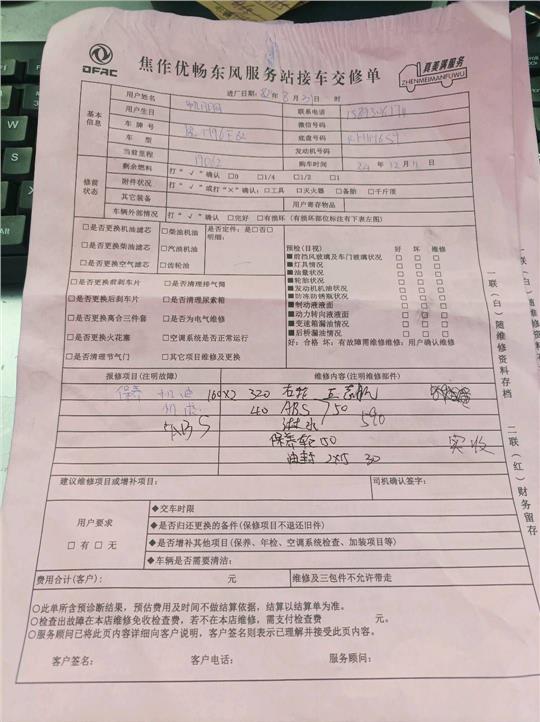 DFAC
焦作优畅东风服务站接车交修单
真美满服务
ZHENMEIMANFUWU
进厂日期: 年 8月 日 时
基本信息
用户姓名
联系电话
用户生日
微信号码
车牌号
底盘号码
车型
发动机号码
当前里程
购车时间 24年12月 日
修前状态
剩余燃料 打“√”确认 □0 □1/4 □1/2 □1
附件状况 打“√”或打“×”确认:□工具 □灭火器 □备胎 □千斤顶
其它装备 用户寄存物品
车辆外部情况 打“√”确认 □完好 □有损坏(有损坏部位标注有下表左图)
□是否更换机油滤芯 □柴油机油 是否定件:是□否□
明细:
□是否更换柴油滤芯 □汽油机油
□是否更换空气滤芯 □齿轮油
□是否更换前刹车片 □是否清理排气筒
□是否更换后刹车片 □是否清理尿素箱
□是否更换离合三件套 □是否为电气维修
□是否更换火花塞 □空调系统是否正常运行
□是否清理节气门 □其它项目维修及更换
预检(目视) 好 坏 维修
■前挡风玻璃及车门玻璃状况 □ □ □
■灯具情况 □ □ □
■油量状况 □ □ □
■轮胎状况 □ □ □
■发动机机油状况 □ □ □
■防冻防锈瓶状况 □ □ □
■制动液液面 □ □ □
■动力转向液液面 □ □ □
■变速箱漏油情况 □ □ □
■后桥漏油情况 □ □ □
好:合格 坏:有故障需维修维修:用户确认维修
报修项目(注明故障) 维修内容(注明维修部件)
保养 机油 160×2 320 右轮
40 ABS 150
ABS 590
保养轮 50 实收
油封 2×15 30
建议维修项目或增补项目: 司机确认签字:
用户要求
□有 □无
◆交车时限
◆是否归还更换的备件(保修项目不退还旧件)
◆是否增补其他项目(保养、年检、空调系统检查、加装项目等)
◆车辆是否需要清洁:
费用合计(客户): 元 维修及三包件不允许带走
○此单所含预诊断结果,预估费用及时间不做结算依据,结算以结算单为准。
○检查出故障在本店维修免收检查费,若不在本店维修,需支付检查费 元。
○服务顾问已将此页内容详细向客户说明,客户签名则表示已理解并接受此页内容。
客户签名: 客户电话: 服务顾问:
一联(白)随维修资料存档
二联(红)财务留存